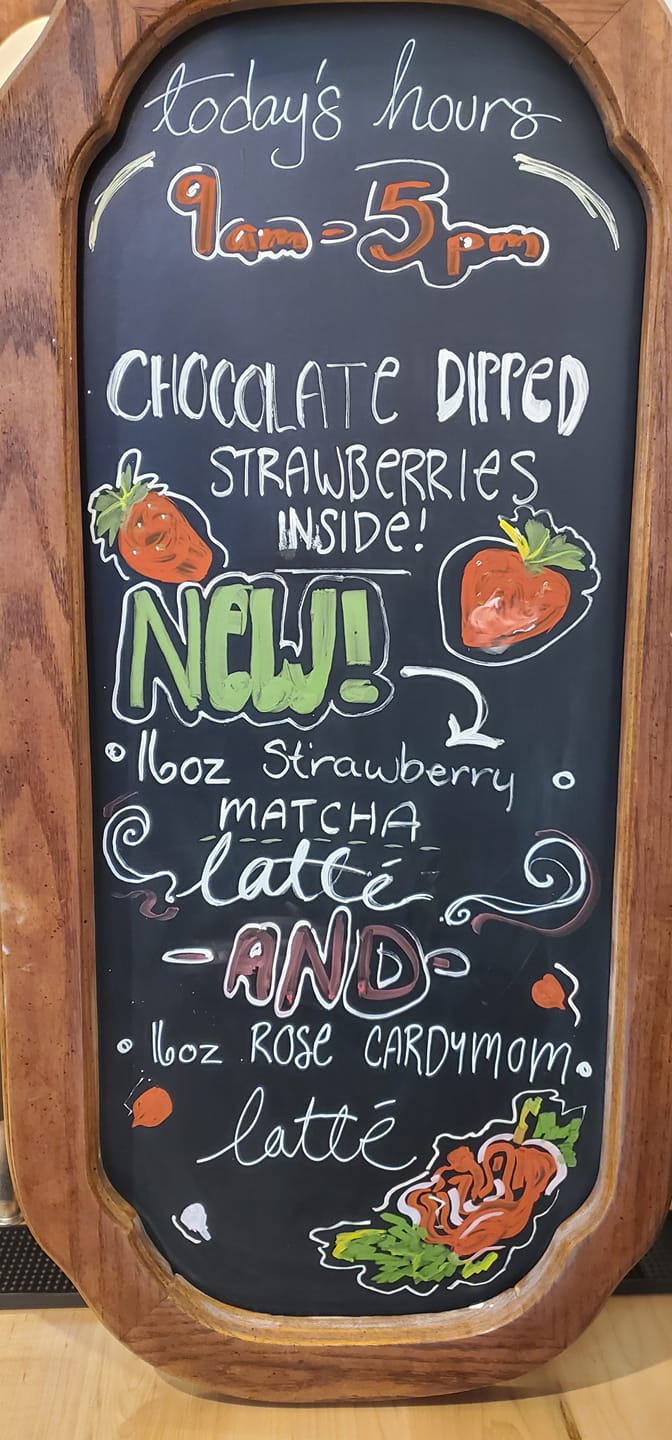 today's hours
9am-5pm
CHOCOLATE DIPPED
STRAWBERRIES
INSIDE!
NEW!
• 16oz Strawberry
MATCHA
latté
-AND-
• 16oz ROSE CARDYMOM •
latté